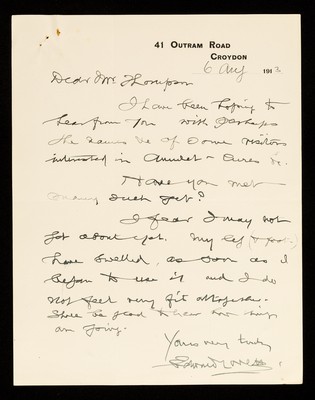 41 OUTRAM ROAD
CROYDON
6 Aug 1913
Dear Mr Thompson
I have been hoping to
hear from you with perhaps
the names &c of some visitors
interested in Amulets - Cures &c.
Have you met
many such yet?
I fear I may not
get about yet. My leg (& foot)
have swelled, as soon as I
began to use it and I do
not feel very fit altogether.
Shall be glad to hear how things
are going.
Yours very truly
Edward Lovett